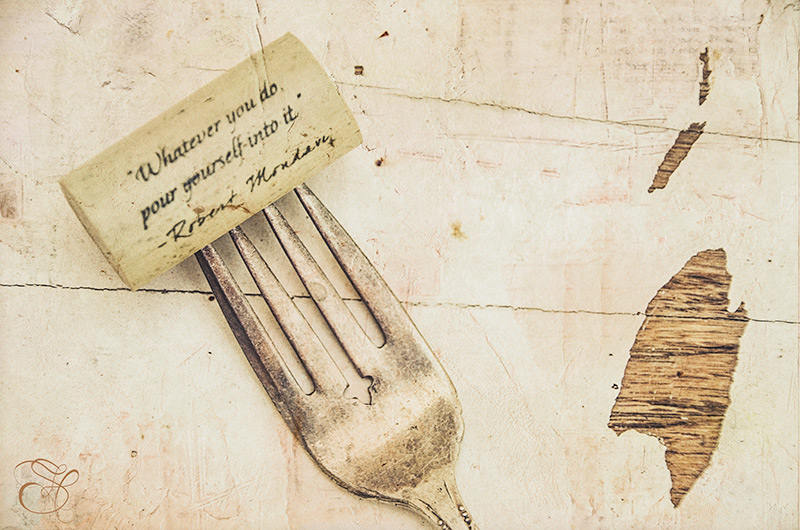 "Whatever you do,
pour yourself into it."
-Robert Mondavi